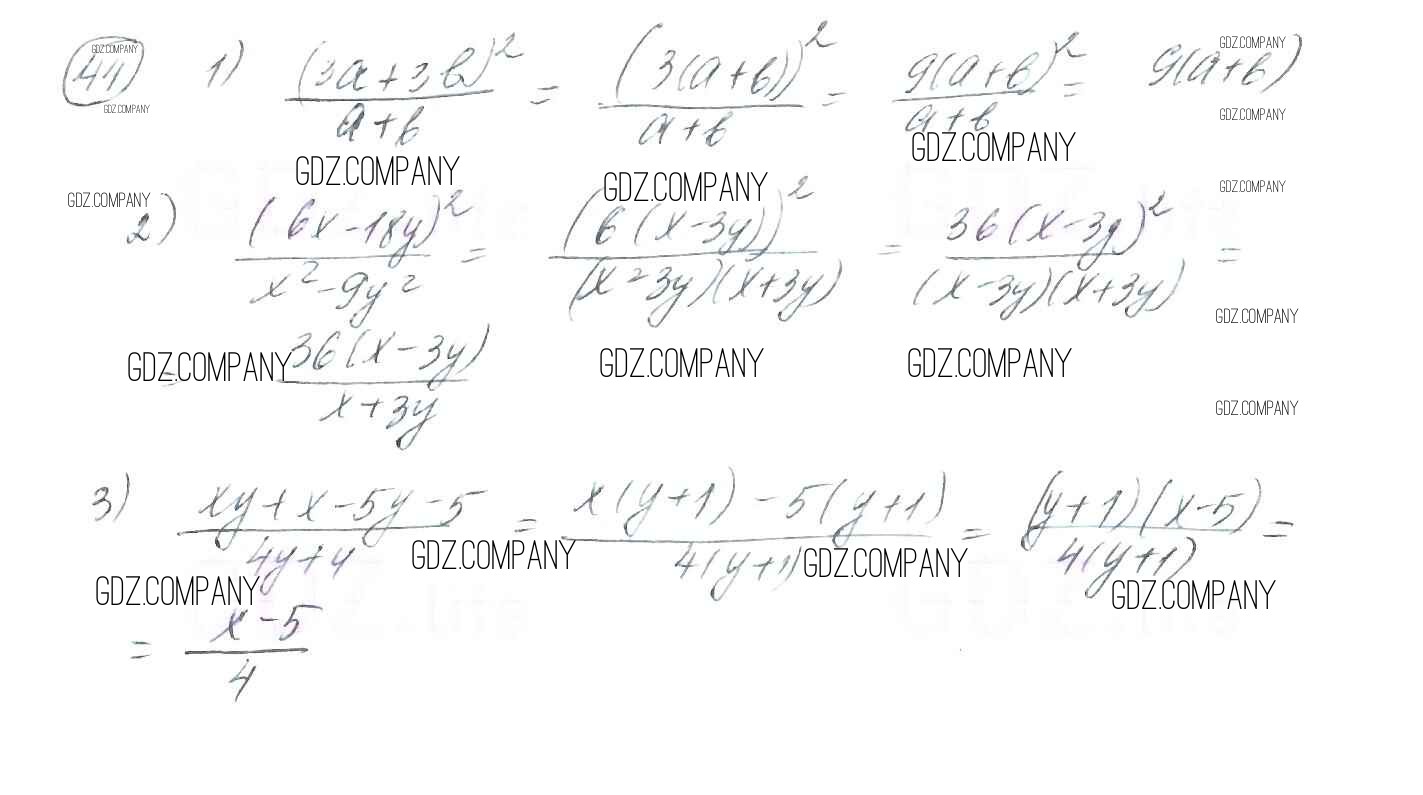 GDZ.COMPANY
44
GDZ.COMPANY
1) (3a+3b)²/(a+b) = (3(a+b))²/(a+b) = 9(a+b)²/(a+b) = 9(a+b)
GDZ.COMPANY
GDZ.COMPANY
GDZ.COMPANY
GDZ.COMPANY
GDZ.COMPANY
GDZ.COMPANY
GDZ.COMPANY
2) (6x-18y)²/(x²-9y²) = (6(x-3y))²/((x-3y)(x+3y)) = 36(x-3y)²/((x-3y)(x+3y)) =
GDZ.COMPANY
= 36(x-3y)/(x+3y)
GDZ.COMPANY
GDZ.COMPANY
GDZ.COMPANY
GDZ.COMPANY
3) (xy+x-5y-5)/(4y+4) = (x(y+1)-5(y+1))/(4(y+1)) = ((y+1)(x-5))/(4(y+1)) =
GDZ.COMPANY
GDZ.COMPANY
GDZ.COMPANY
GDZ.COMPANY
= (x-5)/4